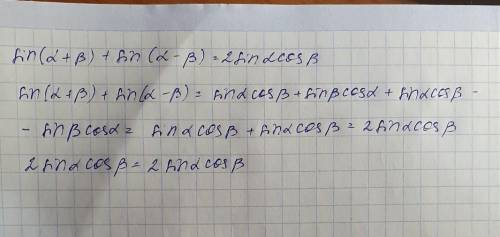 sin(α+β) + sin(α-β) = 2sinαcosβ
sin(α+β) + sin(α-β) = sinαcosβ + sinβcosα + sinαcosβ -
- sinβcosα = sinαcosβ + sinαcosβ = 2sinαcosβ
2sinαcosβ = 2sinαcosβ